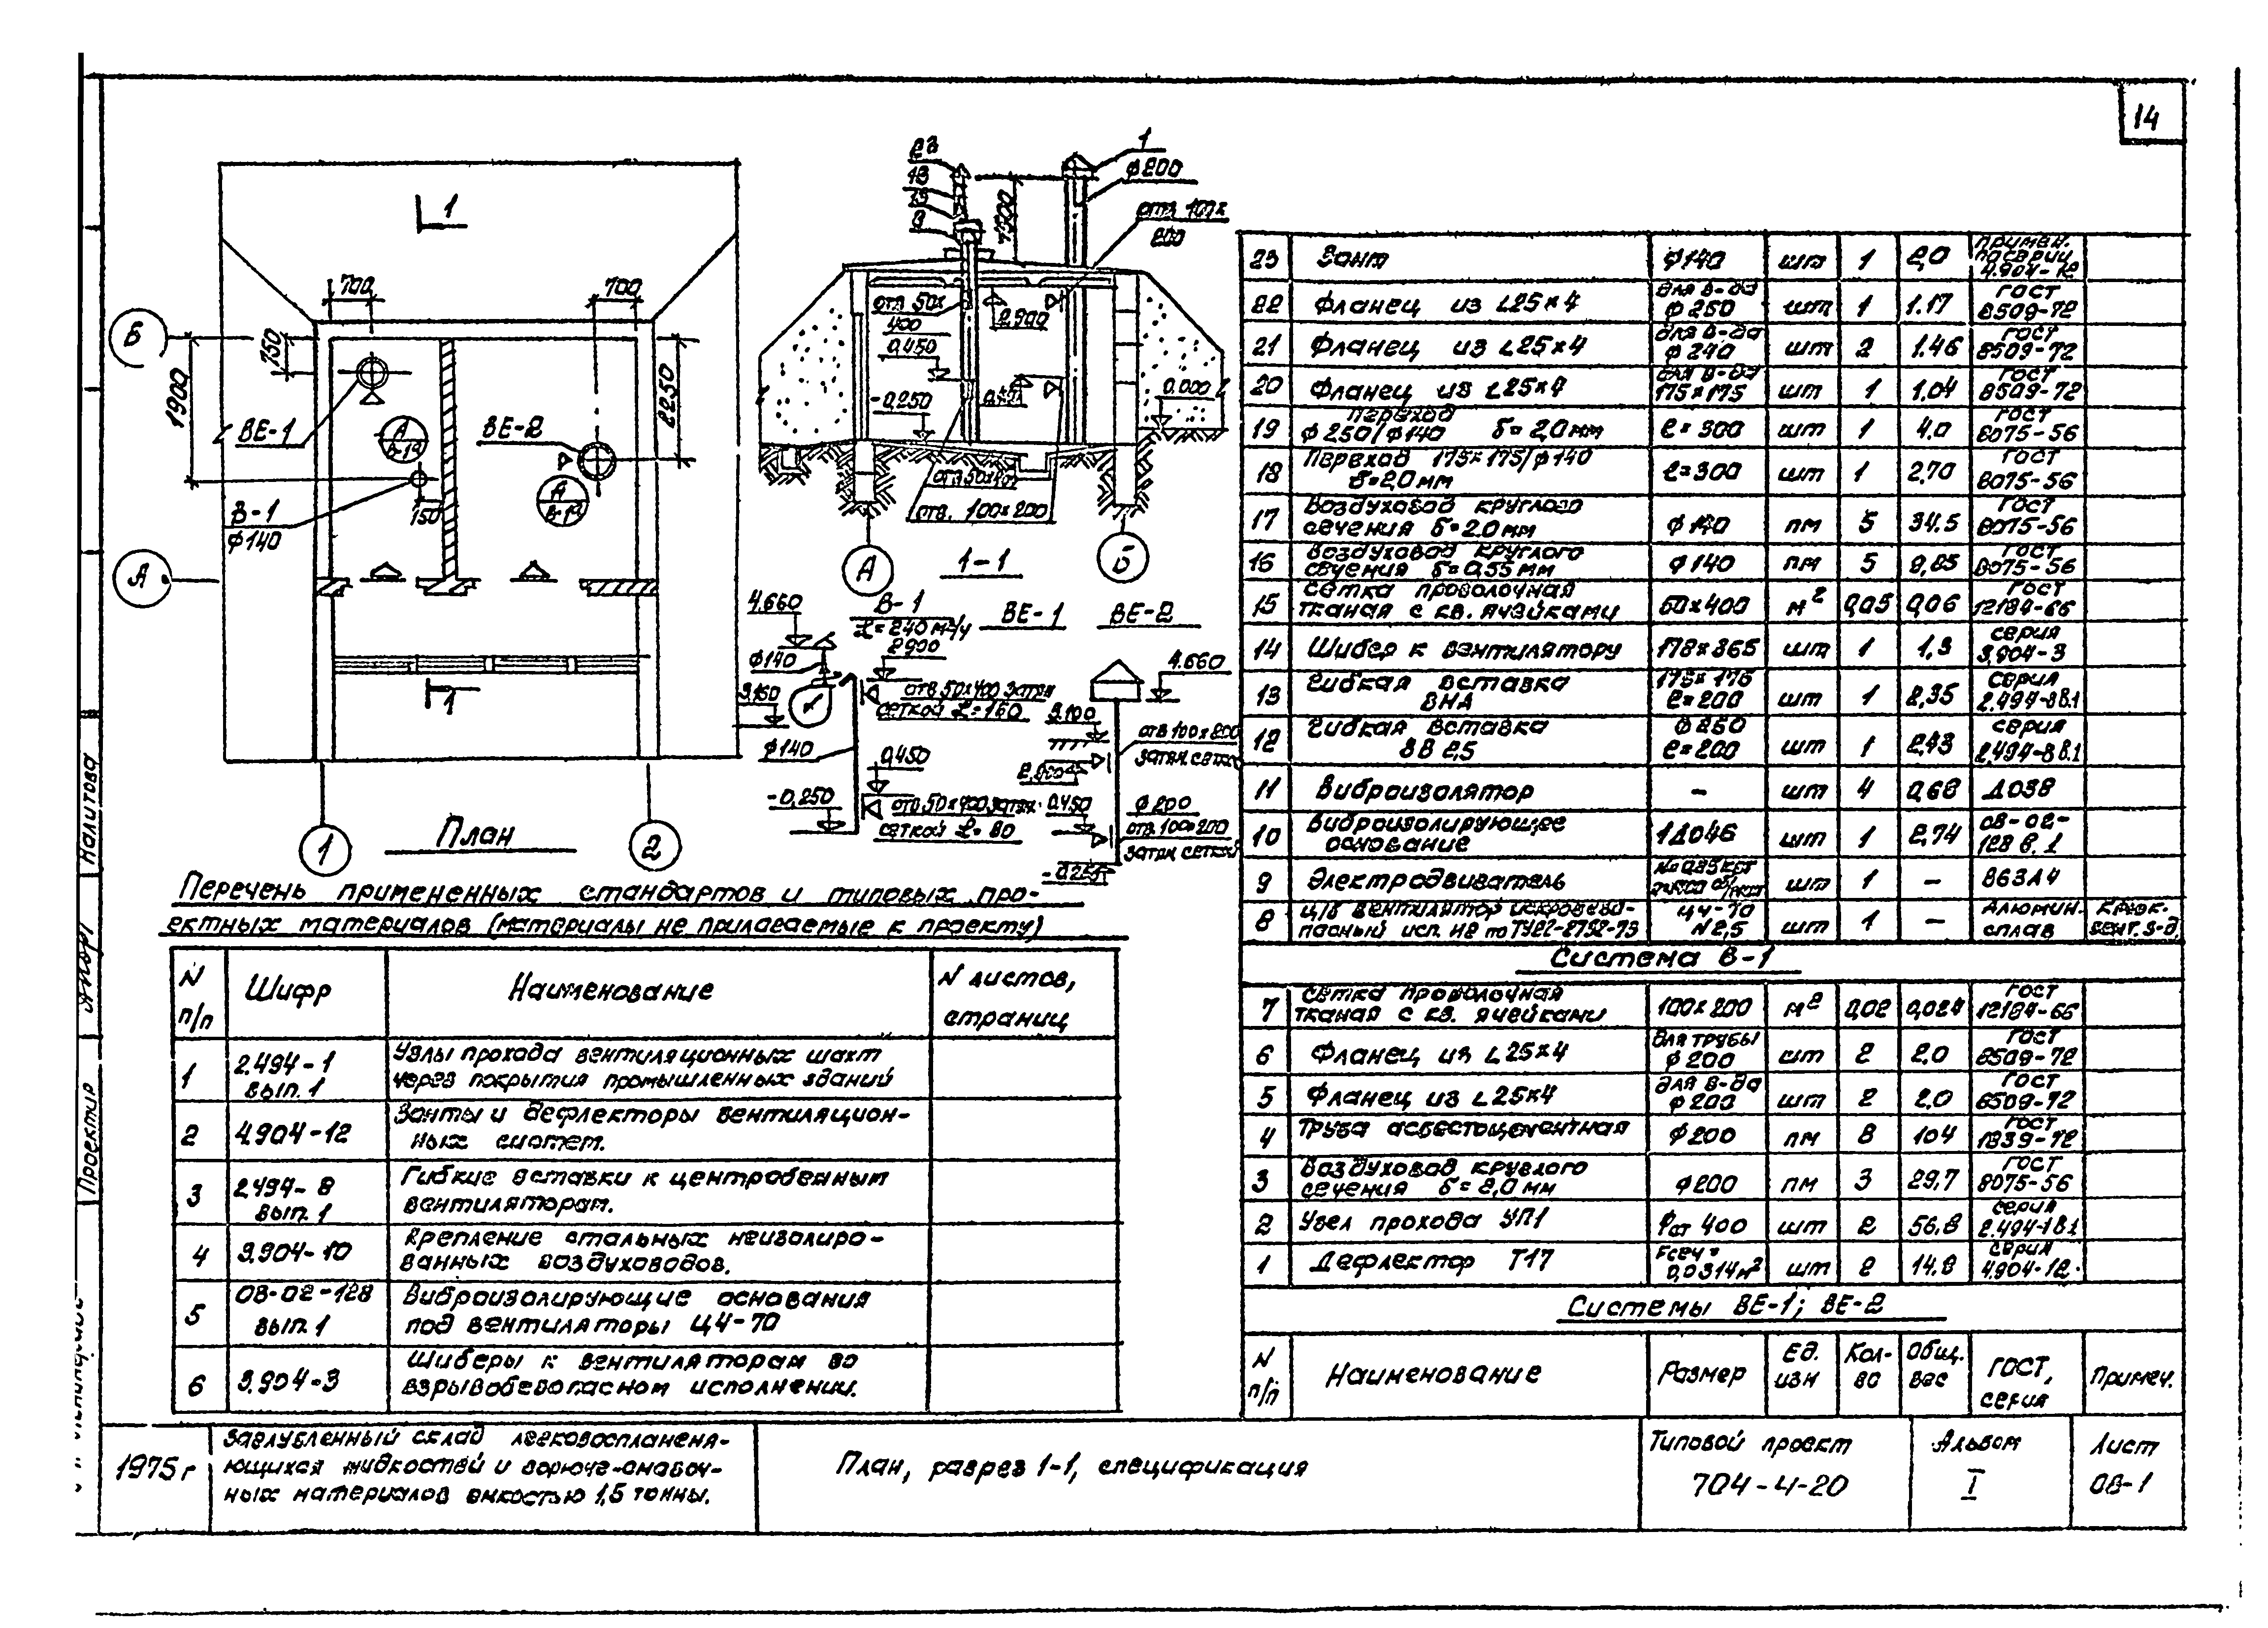 14
1
700
700
Б
750
1900
2250
ВЕ-1
А
В-1а
ВЕ-2
В-1
φ140
150
А
В-1а
А
1
1
2
План
1
φ200
отв 100х
200
отв 50х
400
0,450
2.900
-0,250
0.000
отв. 100х200
А
1-1
Б
4.660
В-1
L=240 м³/ч
2900
ВЕ-1
ВЕ-2
φ140
отв 50х400 затян
сеткой L=160
φ140
0,450
-0,250
отв. 50х400 затян.
сеткой L=80
4.660
3.100
отв 100х200
затян. сеткой
0.450
φ200
отв. 100х200
затян сеткой
-0.250
Перечень примененных стандартов и типовых про-
ектных материалов (материалы не прилагаемые к проекту)
N п/п Шифр Наименование N листов, страниц
1 2.494-1 вып. 1 Узлы прохода вентиляционных шахт через покрытия промышленных зданий
2 4.904-12 Зонты и дефлекторы вентиляцион- ных систем.
3 2.494-8 вып. 1 Гибкие вставки к центробежным вентиляторам.
4 3.904-10 Крепление стальных неизолиро- ванных воздуховодов.
5 08-02-128 вып. 1 Виброизолирующие основания под вентиляторы Ц4-70
6 3.904-3 Шиберы к вентиляторам во взрывобезопасном исполнении.
23 Зонт φ140 шт 1 2,0 примен. по серии 4.904-12
22 Фланец из L25х4 для в-да φ250 шт 1 1.17 ГОСТ 8509-72
21 Фланец из L25х4 для в-да φ240 шт 2 1.46 ГОСТ 8509-72
20 Фланец из L25х4 для в-да 175х175 шт 1 1,04 ГОСТ 8509-72
19 Переход φ250/φ140 δ=2,0мм ℓ=300 шт 1 4.0 ГОСТ 8075-56
18 Переход 175х175/φ140 δ=2,0мм ℓ=300 шт 1 2,70 ГОСТ 8075-56
17 Воздуховод круглого сечения δ=2.0мм φ140 пм 5 34.5 ГОСТ 8075-56
16 Воздуховод круглого сечения δ=0,55мм φ140 пм 5 9,85 ГОСТ 8075-56
15 Сетка проволочная тканая с кв. ячейками 50х400 м² 0,05 0,06 ГОСТ 12184-66
14 Шибер к вентилятору 178х365 шт 1 1,3 серия 3.904-3
13 Гибкая вставка ВНА 175х175 ℓ=200 шт 1 2,35 серия 2.494-8 в.1
12 Гибкая вставка ВВ 2,5 φ250 ℓ=200 шт 1 2,43 серия 2.494-8 в.1
11 Виброизолятор - шт 4 0,68 Д038
10 Виброизолирующее основание 1Д046 шт 1 2,74 08-02- 128 в. 1
9 Электродвигатель шт 1 - В63А4
8 Ц/б вентилятор искробезо- пасный исп. И2 по ТУ22-2792-73 Ц4-70 N2,5 шт 1 - Алюмин. сплав
Система В-1
7 Сетка проволочная тканая с кв. ячейками 100х200 м² 0,02 0,024 ГОСТ 12184-66
6 Фланец из L25х4 для трубы φ200 шт 2 2.0 ГОСТ 8509-72
5 Фланец из L25х4 для в-да φ200 шт 2 2.0 ГОСТ 8509-72
4 Труба асбестоцементная φ200 пм 8 104 ГОСТ 1839-72
3 Воздуховод круглого сечения δ=2,0мм φ200 пм 3 29,7 ГОСТ 8075-56
2 Узел прохода УП1 Рст 400 шт 2 56,8 серия 2.494-1 в.1
1 Дефлектор Т17 Fсеч= 0,0314м² шт 2 14.8 серия 4.904-12.
Системы ВЕ-1; ВЕ-2
N п/п Наименование Размер Ед. изм Кол-во Общ. вес ГОСТ, серия Примеч.
Налитова
Проектир
1975г
Заглубленный склад легковоспламеня-
ющихся жидкостей и горюче-смазоч-
ных материалов емкостью 1,5 тонны.
План, разрез 1-1, спецификация
Типовой проект
704-4-20
Альбом
I
Лист
ОВ-1